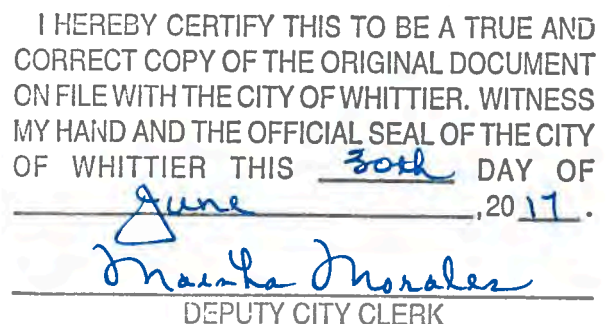 I HEREBY CERTIFY THIS TO BE A TRUE AND
CORRECT COPY OF THE ORIGINAL DOCUMENT
ON FILE WITH THE CITY OF WHITTIER. WITNESS
MY HAND AND THE OFFICIAL SEAL OF THE CITY
OF WHITTIER THIS 30th DAY OF
June, 2017.
Morales
DEPUTY CITY CLERK